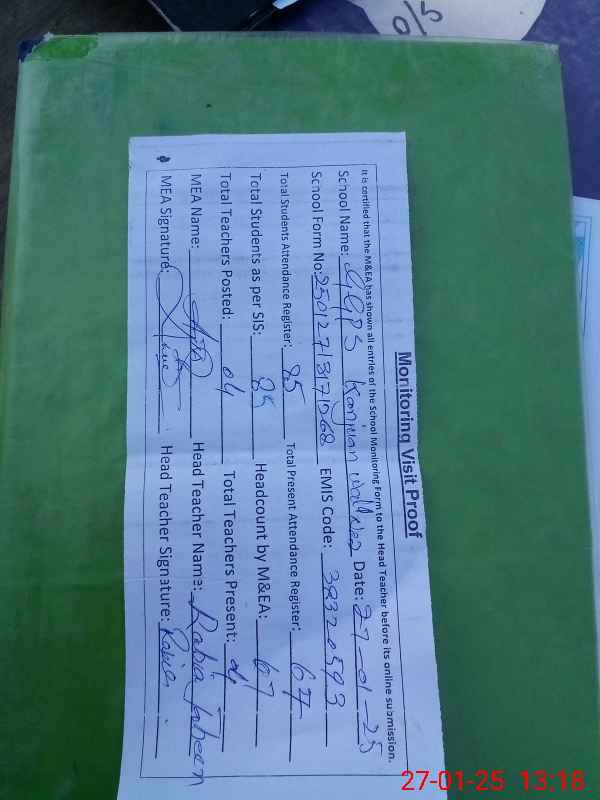 0/5
Monitoring Visit Proof
It is certified that the M&EA has shown all entries of the School Monitoring Form to the Head Teacher before its online submission.
School Name: GGPS Kanjuan Date: 27-01-25
School Form No: EMIS Code: 38320593
Total Students Attendance Register: 85 Total Present Attendance Register: 67
Total Students as per SIS: 85 Headcount by M&EA: 67
Total Teachers Posted: 04 Total Teachers Present: 04
MEA Name: Head Teacher Name: Rabia
MEA Signature: Head Teacher Signature:
27-01-25 13:18